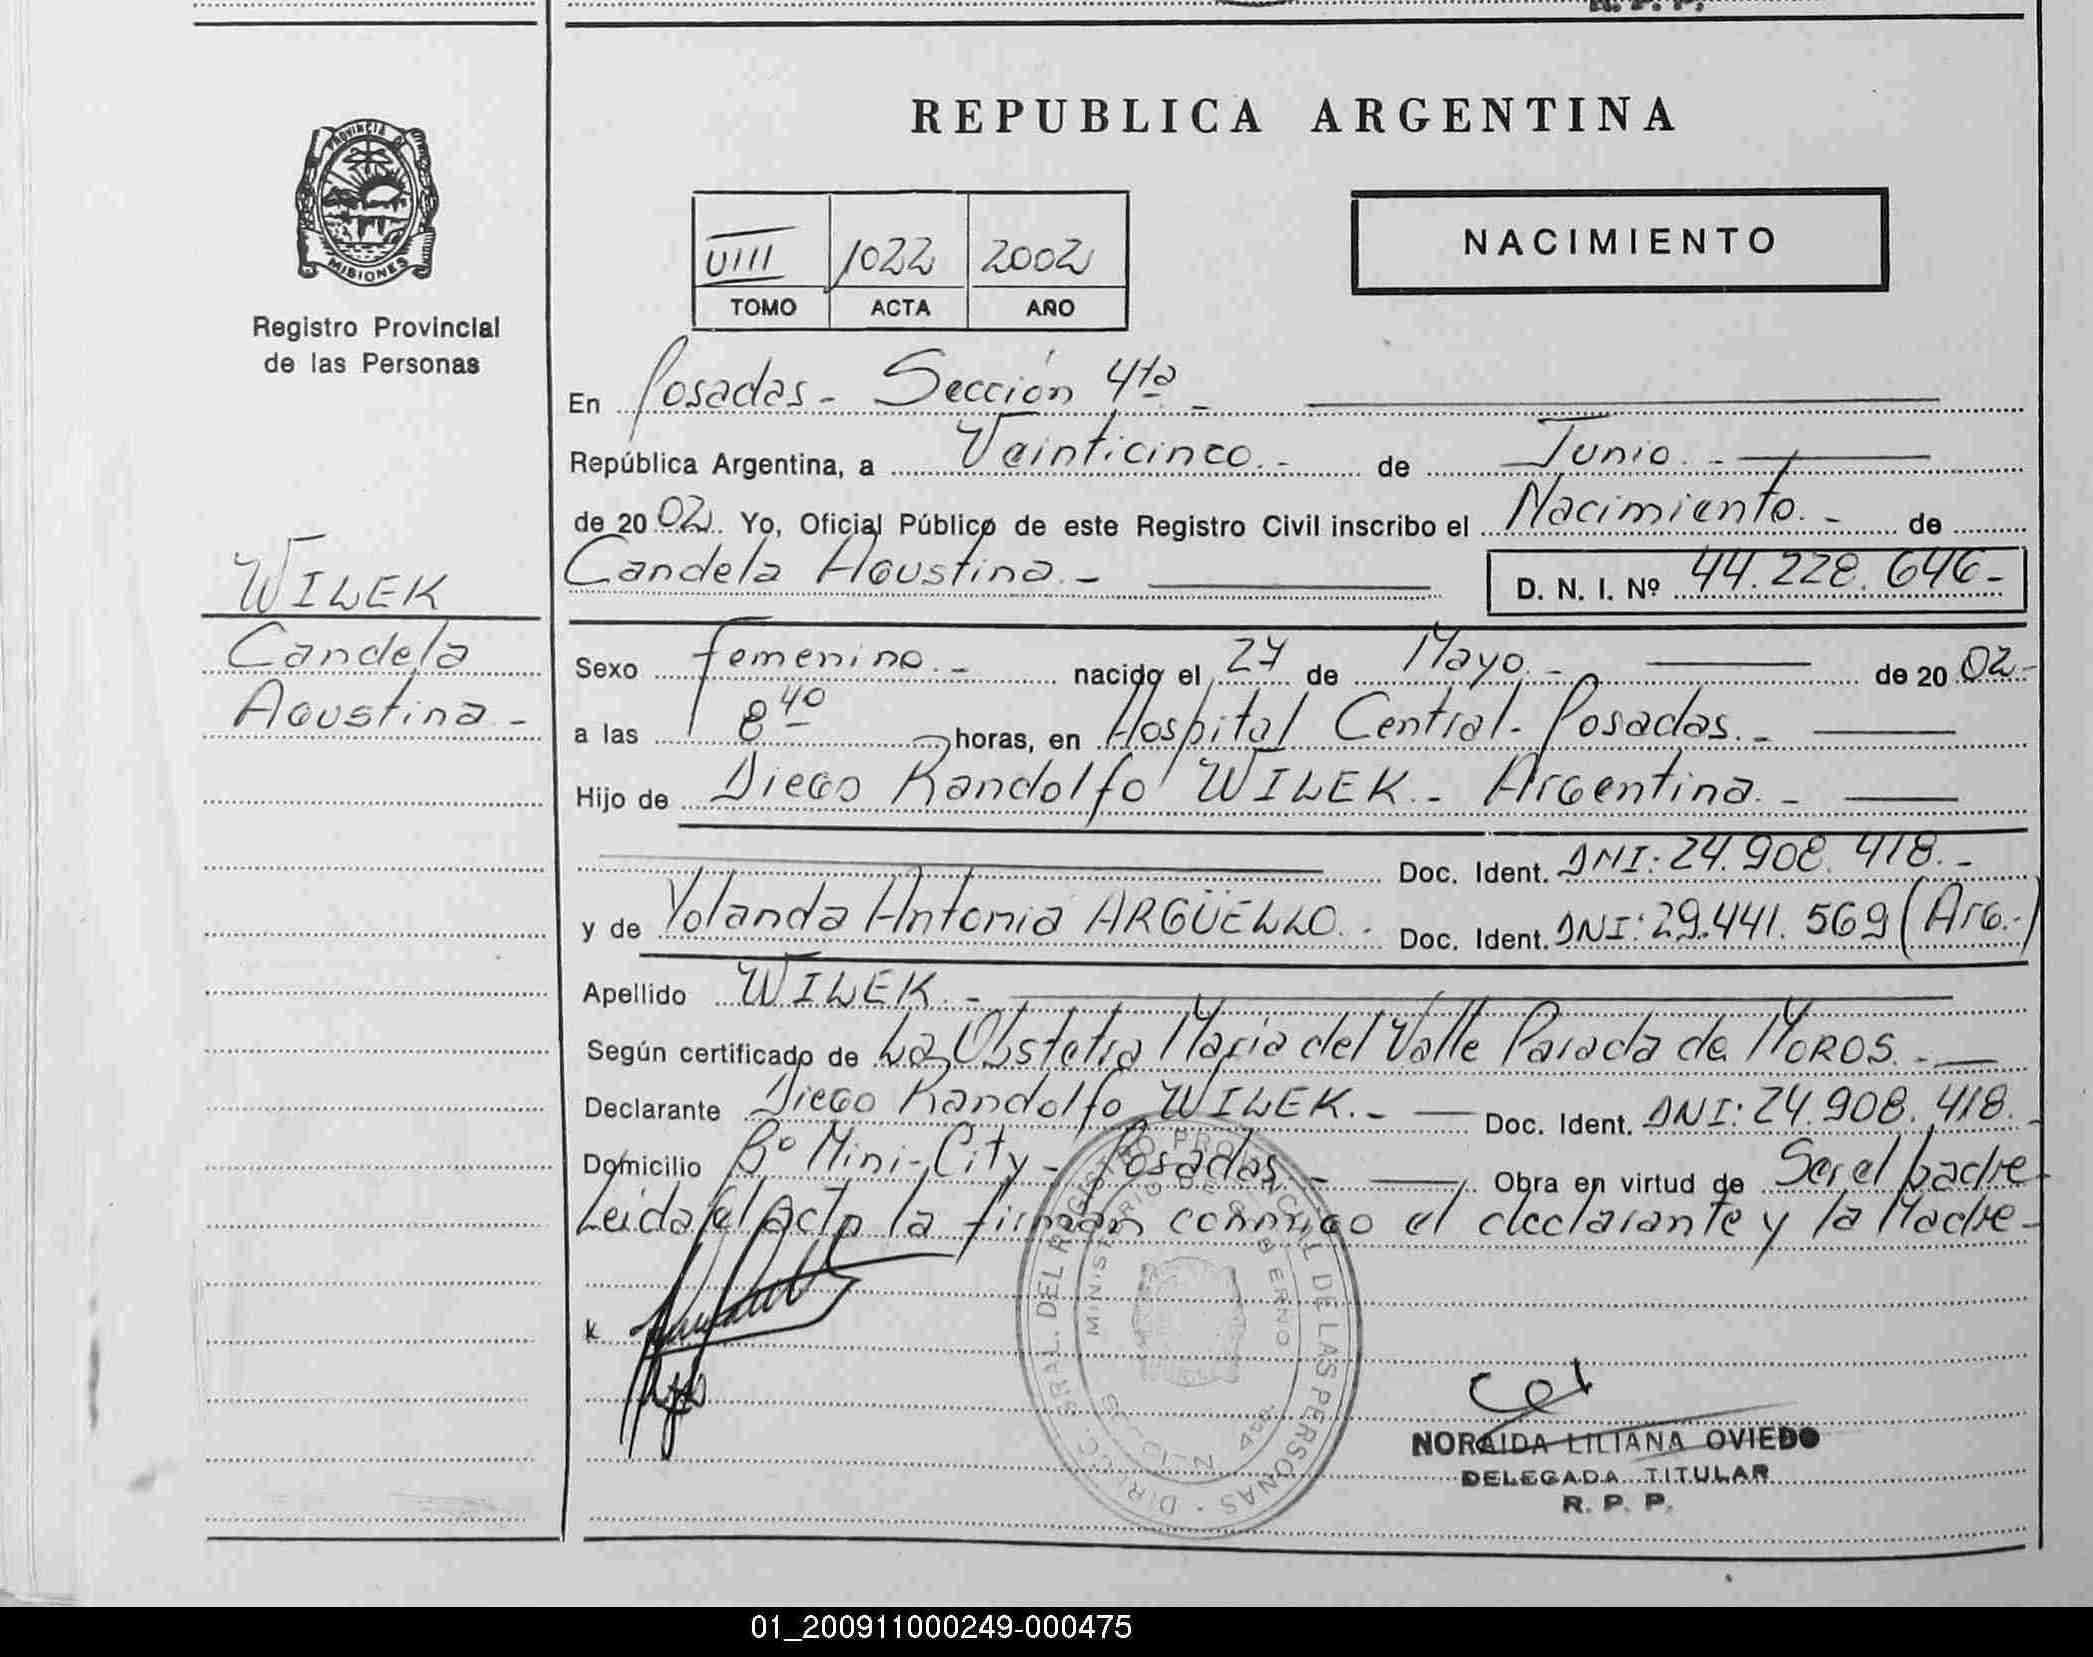 R. P. P.
REPUBLICA ARGENTINA
PROVINCIA DE
MISIONES
Registro Provincial
de las Personas
VIII 1022 2002
TOMO ACTA AÑO
NACIMIENTO
En Posadas - Sección 4ta -
República Argentina, a Veinticinco.- de Junio.-
de 2002 Yo, Oficial Público de este Registro Civil inscribo el Nacimiento.- de
Candela Agustina.- D. N. I. Nº 44.228.646-
WILEK
Candela
Agustina-
Sexo femenino.- nacido el 27 de Mayo.- de 2002-
a las 8 40 horas, en Hospital Central- Posadas.-
Hijo de Diego Randolfo WILEK.- Argentina.-
Doc. Ident. DNI: 24.908.418.-
y de Yolanda Antonia ARGÜELLO.- Doc. Ident. DNI: 29.441.569 (Arg.-)
Apellido WILEK.-
Según certificado de La Obstetra María del Valle Parada de MOROS.-
Declarante Diego Randolfo WILEK.- Doc. Ident. DNI: 24.908.418.
Domicilio Bº Mini-City - Posadas - Obra en virtud de Ser el padre-
Leida el acta la firman conmigo el declarante y la Madre-
DIRECC. GRAL. DEL REGISTRO PROVINCIAL DE LAS PERSONAS -
MINISTERIO DE GOBIERNO
NORAIDA LILIANA OVIEDO
DELEGADA TITULAR
R. P. P.
01_200911000249-000475